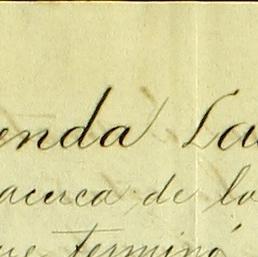 enda La
acerca de la
que terminó